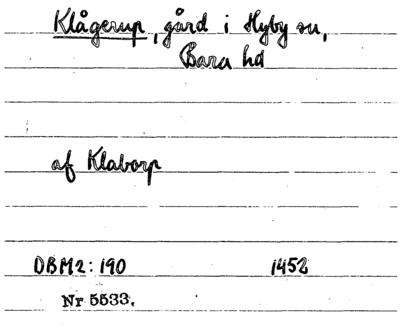 Klågerup, gård i Hyby sn,
Bara hd
af Klaborp
DBM2: 190 1452
Nr 5533.